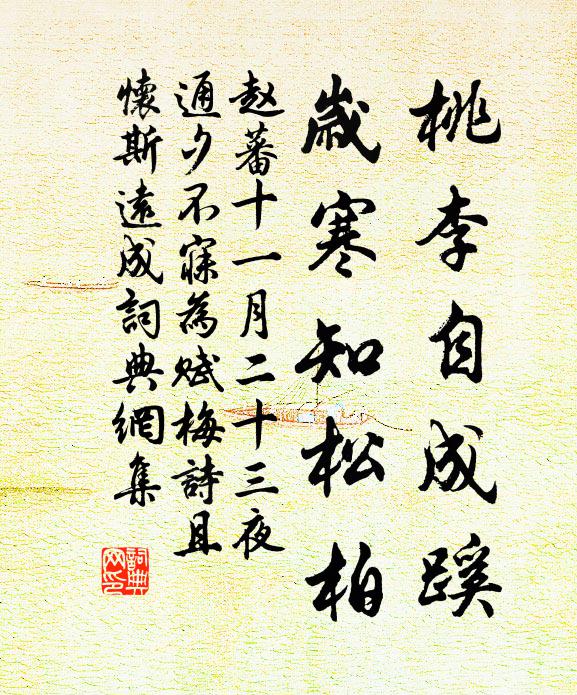 桃李自成蹊
歲寒知松柏
赵蕃十一月二十三夜
通夕不寐為賦梅詩且
懷斯遠成詞典網集
詞典
网印